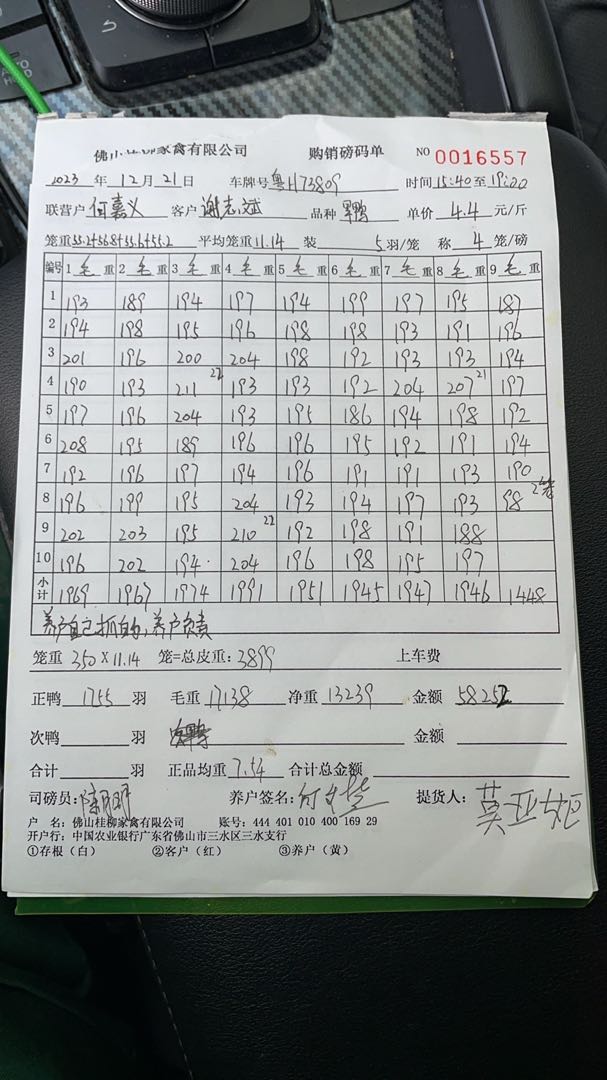 AUTO HOLD
佛山桂柳家禽有限公司 购销磅码单 NO 0016557
2023 年 12 月 21 日 车牌号 粤H73809 时间 15:40 至 19:20
联营户 何嘉义 客户 谢志斌 品种 单价 4.4 元/斤
笼重 55.2+56.8+55.6+55.2 平均笼重 11.14 装 5 羽/笼 称 4 笼/磅
编号 1 毛 重 2 毛 重 3 毛 重 4 毛 重 5 毛 重 6 毛 重 7 毛 重 8 毛 重 9 毛 重
1 193 189 194 197 194 199 197 195 187
2 194 198 195 196 198 198 193 191 196
3 201 196 200 204 198 192 193 193 194
4 190 193 211 22 193 193 192 204 207 21 197
5 197 196 204 193 195 186 194 198 192
6 208 195 189 196 196 195 192 191 194
7 192 196 197 194 196 191 191 193 190
8 196 199 195 204 193 194 197 193 98 2笼
9 202 203 195 210 22 192 198 191 188
10 196 202 194 204 196 198 195 197
小计 1969 1967 1974 1991 1951 1945 1947 1946 1448
养户自己抓自的,养户负责
笼重 350×11.14 笼=总皮重: 3899 上车费
正鸭 1755 羽 毛重 17138 净重 13239 金额 58252
次鸭 羽 金额
合计 羽 正品均重 7.54 合计总金额
司磅员: 养户签名: 提货人: 莫亚姬
户 名: 佛山桂柳家禽有限公司 账号: 444 401 010 400 169 29
开户行: 中国农业银行广东省佛山市三水区三水支行
①存根(白) ②客户(红) ③养户(黄)